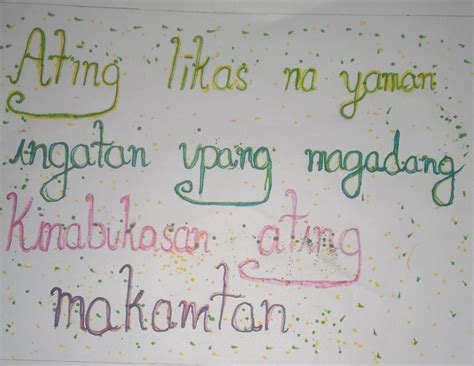 Ating likas na yaman
ingatan upang magadang
Kinabukasan ating
makamtan